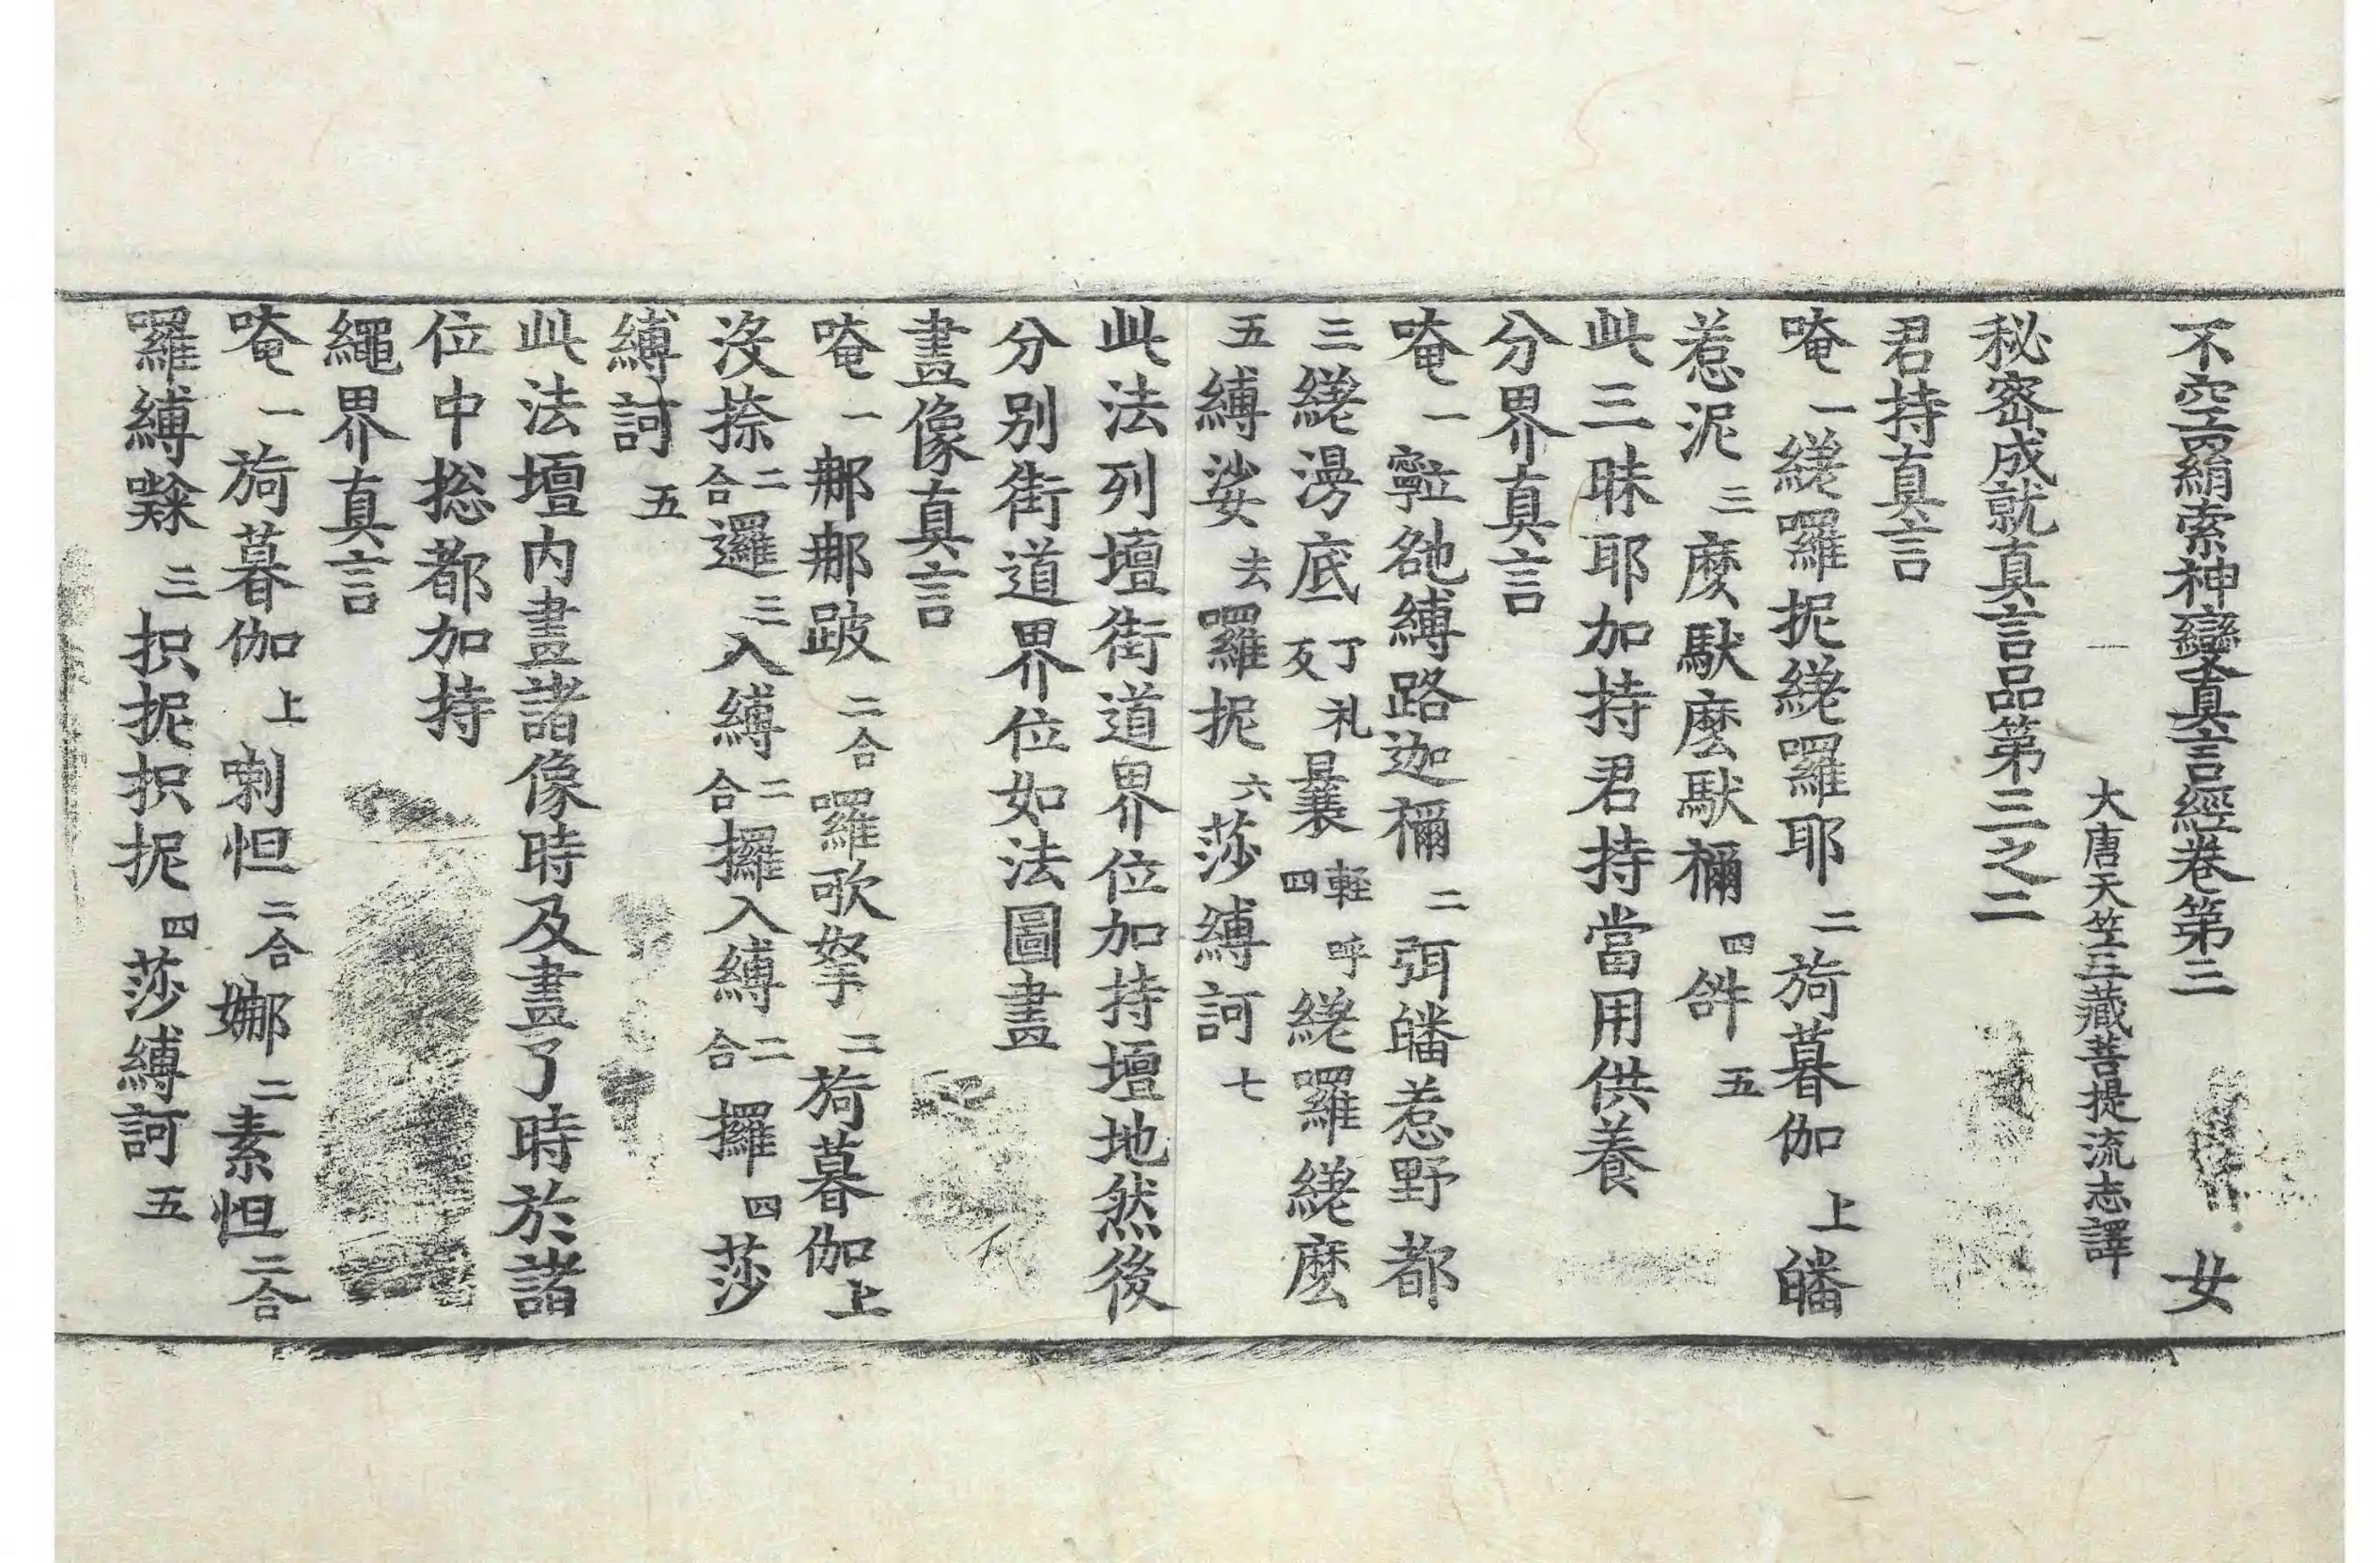 不空羂索神變真言經卷第三 女
大唐天竺三藏菩提流志譯
秘密成就真言品第三之二
君持真言
唵一縒囉抳縒囉耶二旖暮伽上皤
惹泥三麼馱麼馱禰四𤙖五
此三昧耶加持君持當用供養
分界真言
唵一嚀𧙃縛路迦禰二弭皤惹野都
三縒漫底丁礼反曩輕呼四縒囉縒麼
五縛娑去囉抳六莎縛訶七
此法列壇街道界位加持壇地然後
分別街道界位如法圖畫
畫像真言
唵一郍郍跛二合囉歌拏二旖暮伽上
沒捺二合邏三入縛二合攞入縛二合攞四莎
縛訶五
此法壇內畫諸像時及畫了時於諸
位中惣都加持
繩界真言
唵一旖暮伽上喇怛二合娜二素怛二合
囉縛㘑三抧抳抧抳四莎縛訶五